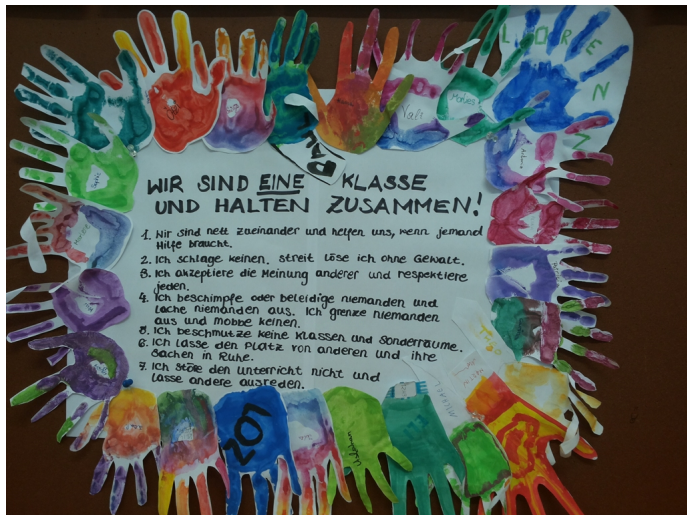 LOREN
WIR SIND EINE KLASSE
UND HALTEN ZUSAMMEN!
1. Wir sind nett zueinander und helfen uns, wenn jemand
Hilfe braucht.
2. Ich schlage keinen. streit löse ich ohne Gewalt.
3. Ich akzeptiere die Meinung anderer und respektiere
jeden.
4. Ich beschimpfe oder beleidige niemanden und
lache niemanden aus. Ich grenze niemanden
aus und mobbe keinen.
5. Ich beschmutze keine Klassen und Sonderräume.
6. Ich lasse den Platz von anderen und ihre
Sachen in Ruhe.
7. Ich störe den unterricht nicht und
lasse andere ausreden.